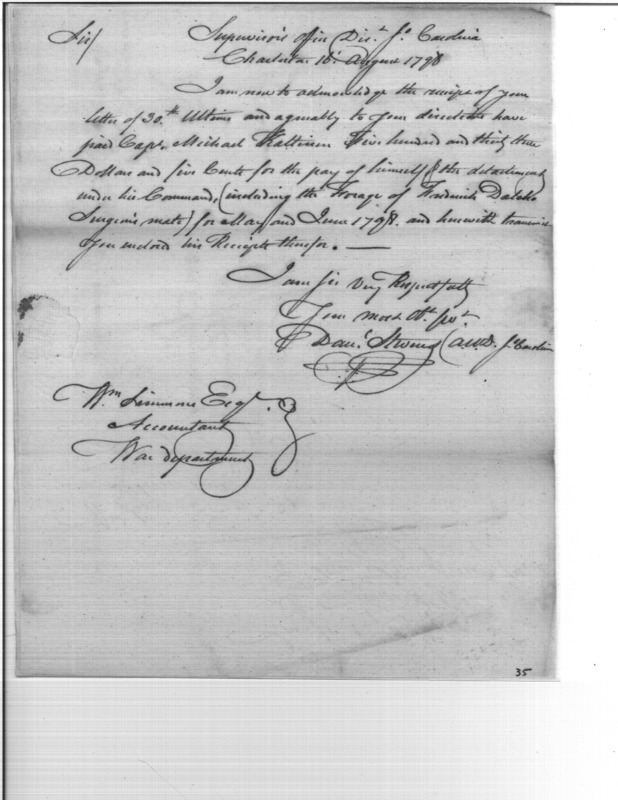 Sir/ Supervisor's Office Dist. So. Carolina
Charleston 16. August 1798
I am now to acknowledge the receipt of your
letter of 30.th Ultimo and agreeably to your directions have
paid Capt. Michael Kalteisen five hundred and thirty three
Dollars and five Cents for the pay of himself & the detachment
under his Command, (including the forage of Frederick Dalcho
Surgeon's mate) for May and June 1798. and herewith transmit
you enclosed his Receipts therefor. —
I am Sir Very Respectfully
Your most Ob.t Ser.t
Dan.l Stevens So. Carolina
Wm Simmons Esqr.
Accountant
War department
35